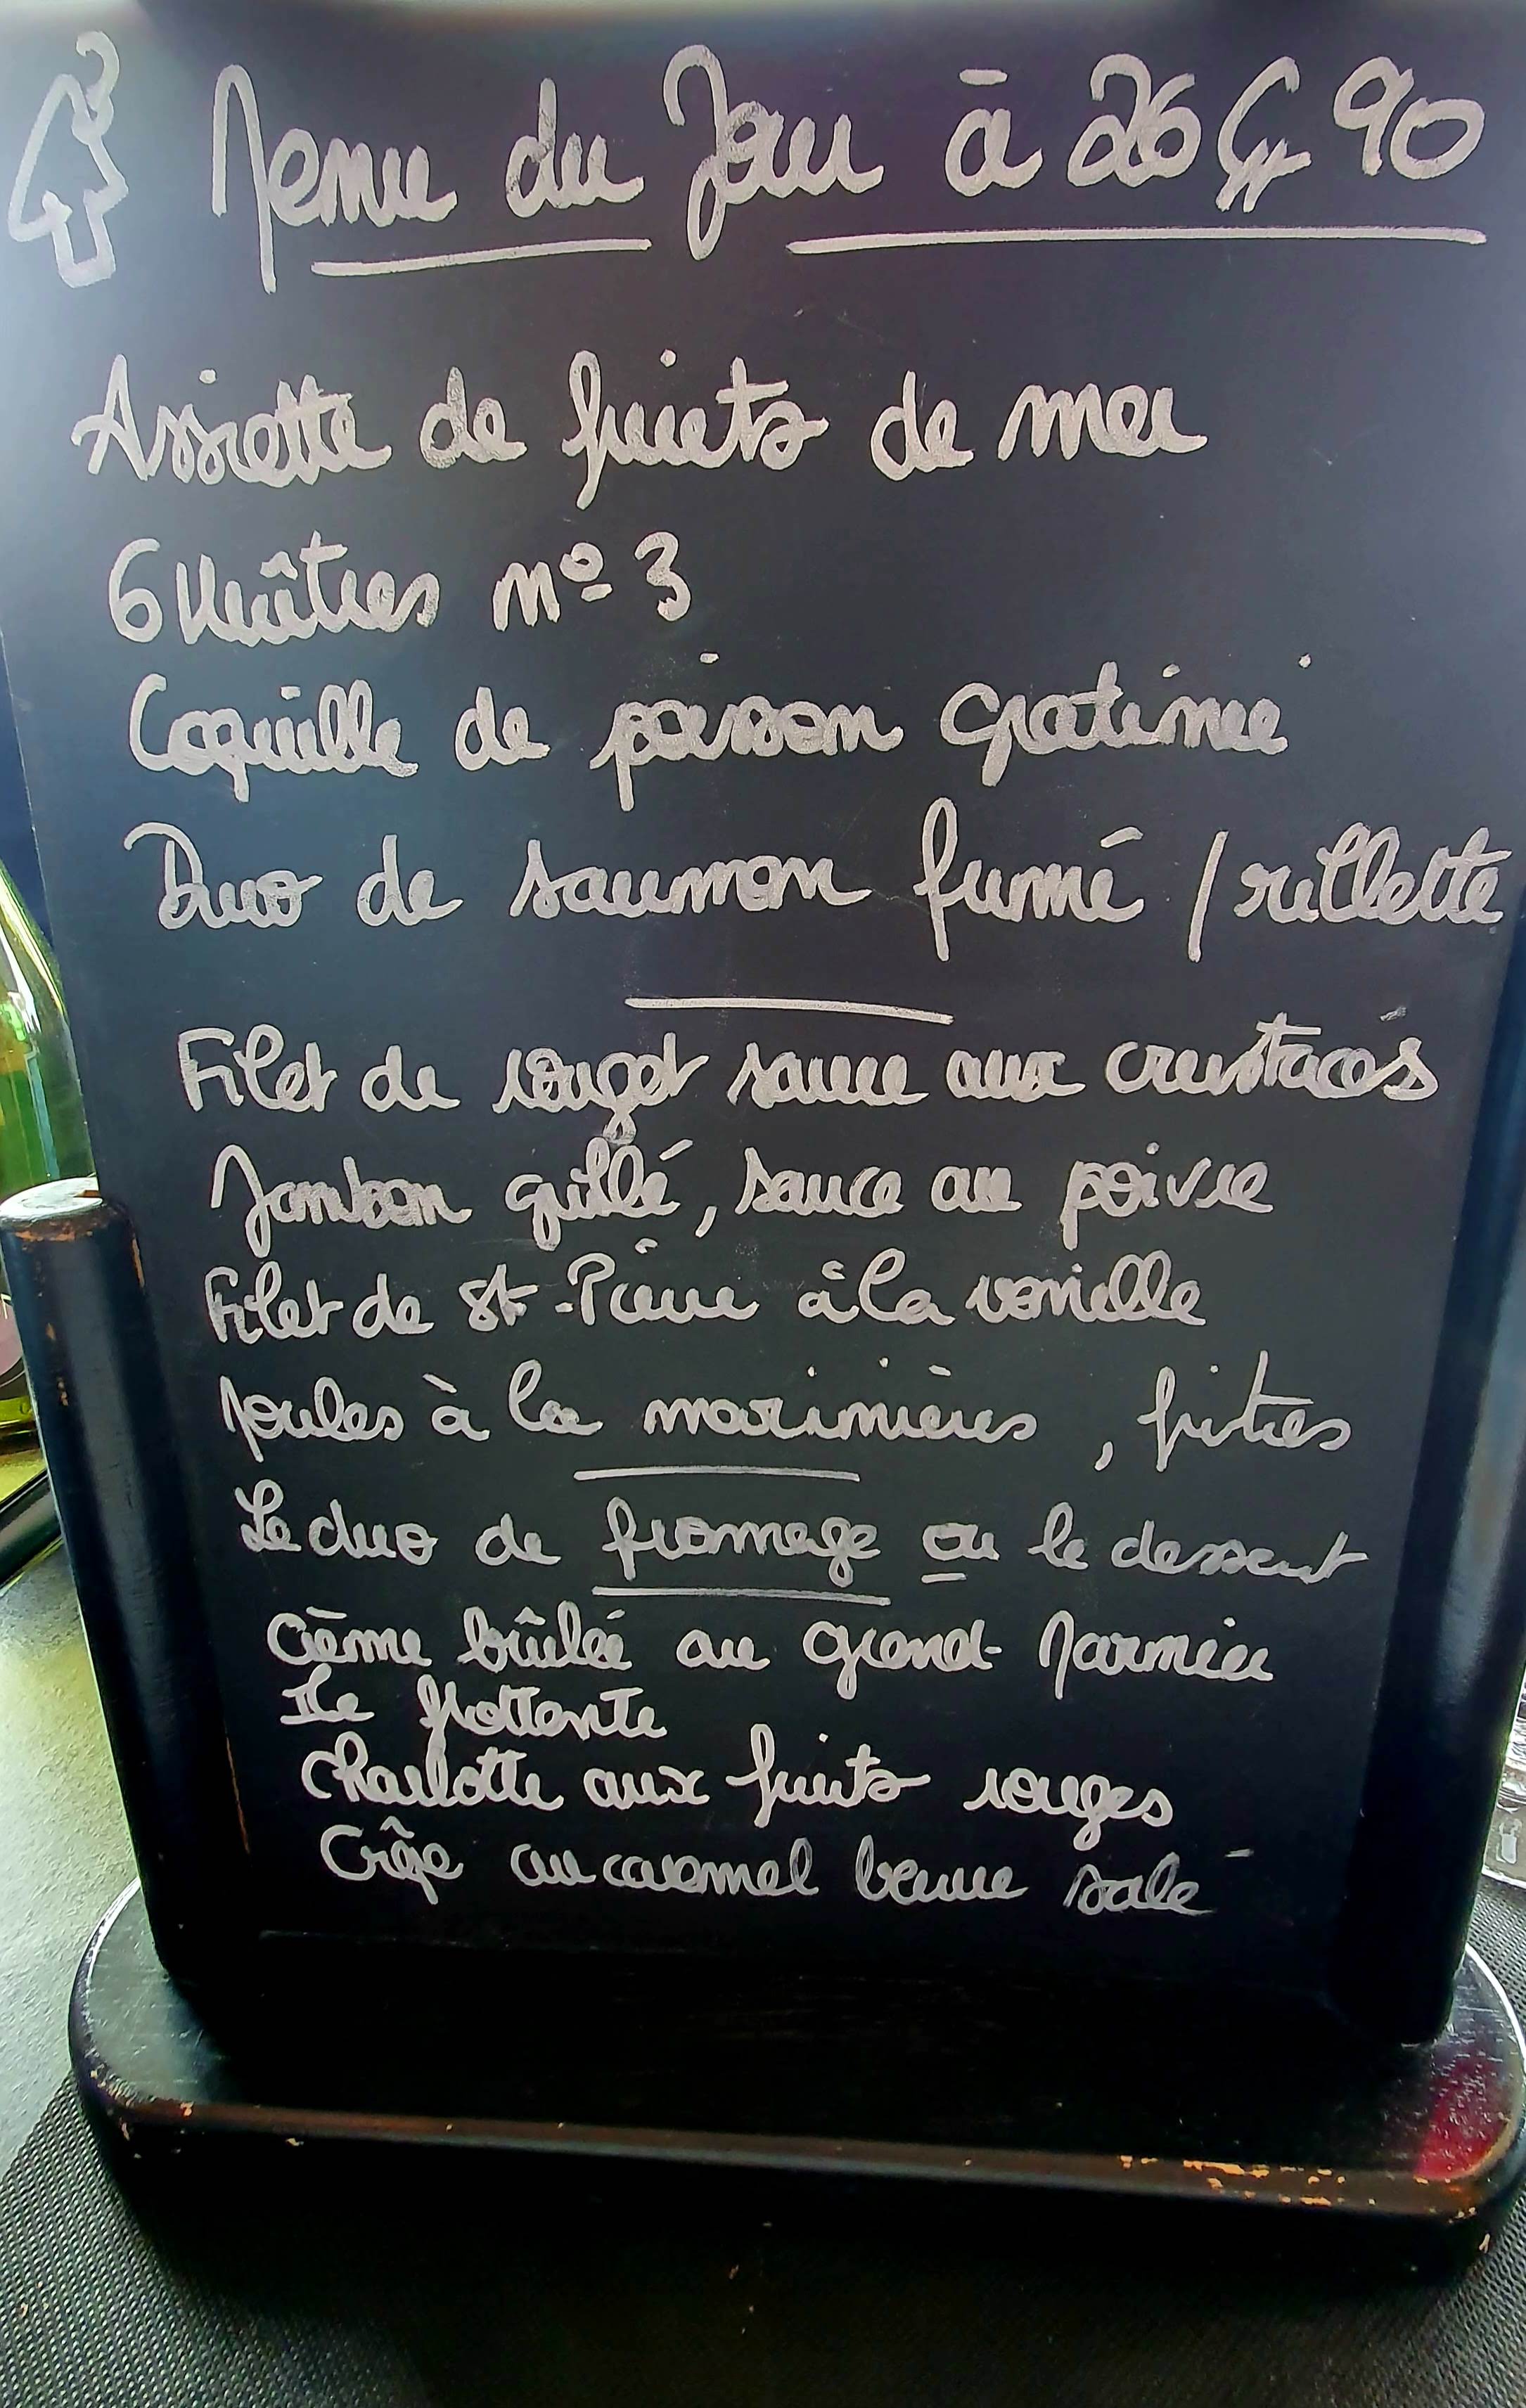 Menu du Jour à 26€90
Assiette de fruits de mer
6 Huîtres n° 3
Coquille de poisson gratinée
Duo de saumon fumé / rillette
Filet de rouget sauce aux crustacés
Jambon grillé, sauce au poivre
Filet de St-Pierre à la vanille
Moules à la marinières, frites
Le duo de fromage ou le dessert
Crème brûlée au grand-Marnier
Ile flottante
Charlotte aux fruits rouges
Crêpe au caramel beurre salé